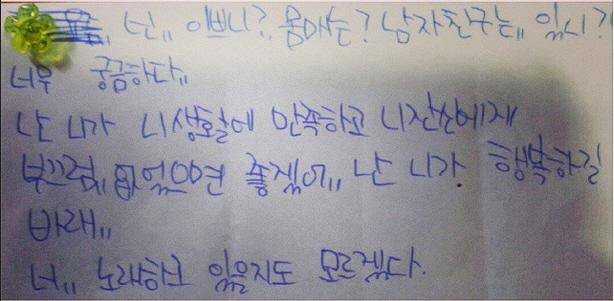 넌,, 이쁘니?, 몸매는? 남자친구는,, 있니?
너무 궁금하다,,
난 니가 니생활에 만족하고 니자신에게
부끄럼,, 없으면 좋겠어,, 난 니가 행복하길
바래,,
너,, 노래하고 있을지도 모르겠다.